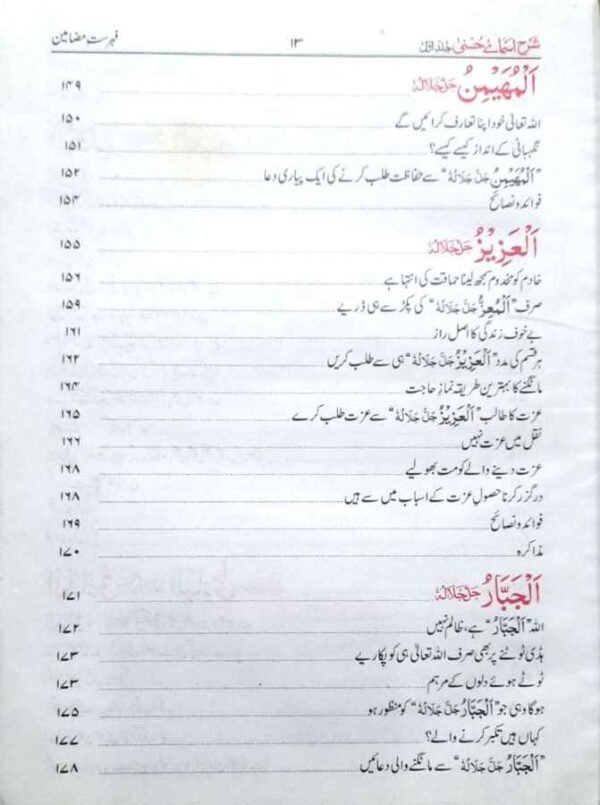 شرح اسمائے حسنیٰ جلد اول ۱۳ فہرست مضامین
اَلْمُهَيْمِنُ جَلَّ جَلَالُهٗ ۱۴۹
اللہ تعالیٰ خود اپنا تعارف کرائیں گے ۱۵۰
نگہبانی کے انداز کیسے کیسے؟ ۱۵۱
”اَلْمُهَيْمِنُ جَلَّ جَلَالُهٗ“ سے حفاظت طلب کرنے کی ایک پیاری دعا ۱۵۲
فوائد و نصائح ۱۵۴
اَلْعَزِيْزُ جَلَّ جَلَالُهٗ ۱۵۵
خادم کو مخدوم سمجھ لینا حماقت کی انتہا ہے ۱۵۶
صرف ”اَلْمُعِزُّ جَلَّ جَلَالُهٗ“ کی پکڑ سے ہی ڈریے ۱۵۹
بے خوف زندگی کا اصل راز ۱۶۱
ہر قسم کی مدد ”اَلْعَزِيْزُ جَلَّ جَلَالُهٗ“ ہی سے طلب کریں ۱۶۲
مانگنے کا بہترین طریقہ نماز حاجت ۱۶۴
عزت کا طالب ”اَلْعَزِيْزُ جَلَّ جَلَالُهٗ“ سے عزت طلب کرے ۱۶۵
نقل میں عزت نہیں ۱۶۶
عزت دینے والے کو مت بھولیے ۱۶۸
درگزر کرنا حصولِ عزت کے اسباب میں سے ہیں ۱۶۸
فوائد و نصائح ۱۶۹
مذاکرہ ۱۷۰
اَلْجَبَّارُ جَلَّ جَلَالُهٗ ۱۷۱
اللہ ”اَلْجَبَّارُ“ ہے، ظالم نہیں ۱۷۲
ہڈی ٹوٹنے پر بھی صرف اللہ تعالیٰ ہی کو پکاریے ۱۷۳
ٹوٹے ہوئے دلوں کے مرہم ۱۷۳
ہوگا وہی جو ”اَلْجَبَّارُ جَلَّ جَلَالُهٗ“ کو منظور ہو ۱۷۵
کہاں ہیں تکبر کرنے والے؟ ۱۷۷
”اَلْجَبَّارُ جَلَّ جَلَالُهٗ“ سے مانگنے والی دعائیں ۱۷۸